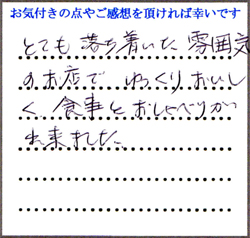 お気付きの点やご感想を頂ければ幸いです
とても落ち着いた雰囲気
のお店で ゆっくりおいし
く 食事とおしゃべりが
出来ました